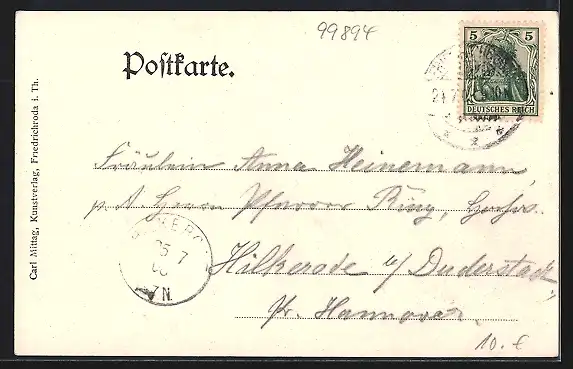 99894
Postkarte.
5 5
DEUTSCHES REICH
Carl Mittag, Kunstverlag, Friedrichroda i. Th.
Fräulein Anna Heinemann,
p. A. Herrn Pfarrer Ring,
25 7
7N.
Hilkerode b/ Duderstadt,
Pr. Hannover
10.-€